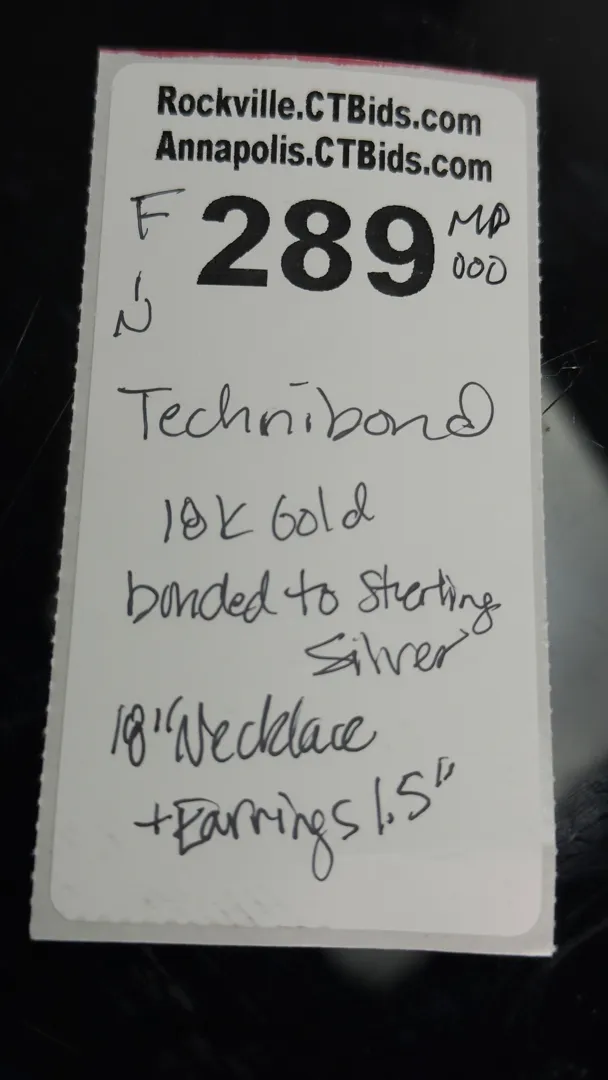 Rockville.CTBids.com
Annapolis.CTBids.com
F 289 MP
000
- N
Technibond
18K Gold
bonded to Sterling
Silver
18" Necklace
+Earrings 1.5"